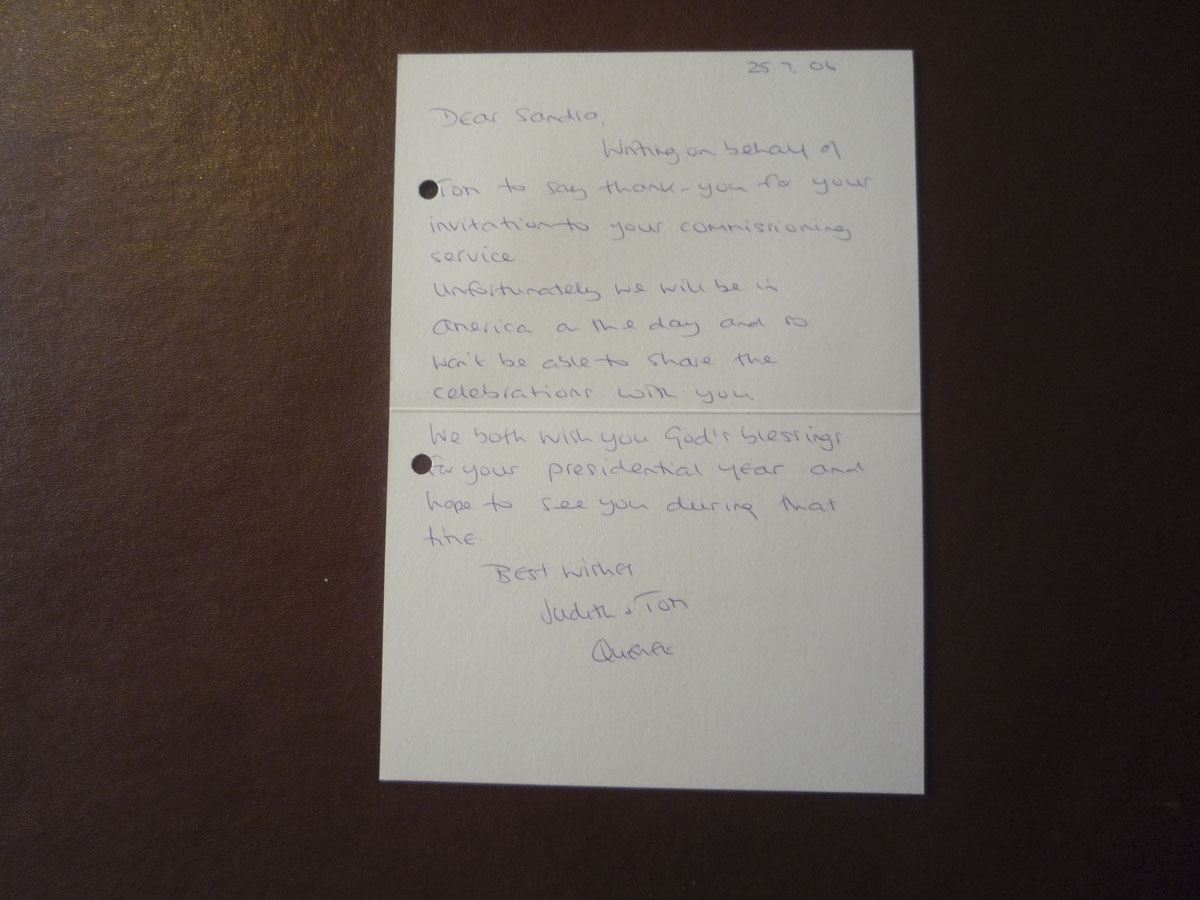 25 7 06
Dear Sandra,
Writing on behalf of
Tom to say thank-you for your
invitation to your commissioning
service.
Unfortunately we will be in
America on the day and so
won't be able to share the
celebrations with you
We both wish you God's blessings
for your presidential year and
hope to see you during that
time.
Best wishes
Judith & Tom